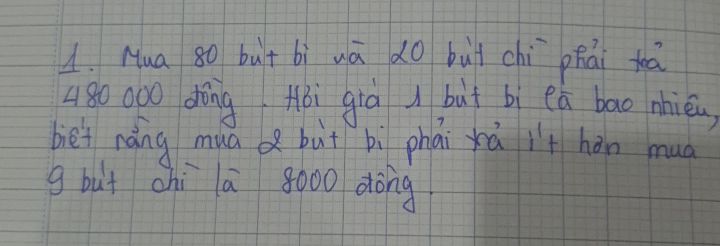 1. Mua 80 bút bi và 20 bút chì phải trả
480 000 đồng. Hỏi giá 1 bút bi là bao nhiêu,
biết rằng mua 2 bút bi phải trả ít hơn mua
9 bút chì là 8000 đồng.